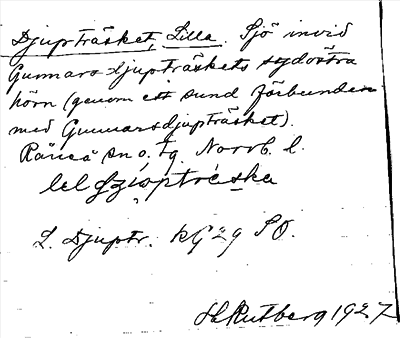 Djupträsket, Lilla. Sjö invid
Gunnarsdjupträskets sydöstra
hörn (genom ett sund förbunden
med Gunnarsdjupträsket).
Råneå sn o. tg. Norrb. l.
L. Djuptr. kG29 SO.
H Rutberg 1927